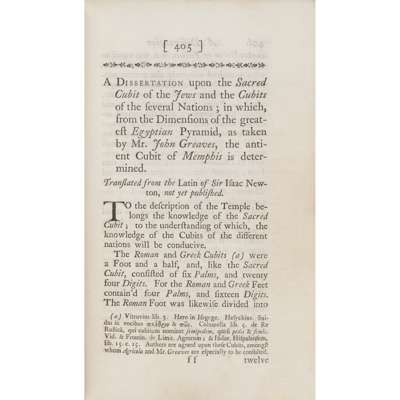 [ 405 ]
A DISSERTATION upon the Sacred
Cubit of the Jews and the Cubits
of the ſeveral Nations ; in which,
from the Dimenſions of the great-
eſt Egyptian Pyramid, as taken
by Mr. John Greaves, the anti-
ent Cubit of Memphis is deter-
mined.
Tranſlated from the Latin of Sir Iſaac New-
ton, not yet publiſhed.
TO the deſcription of the Temple be-
longs the knowledge of the Sacred
Cubit ; to the underſtanding of which, the
knowledge of the Cubits of the different
nations will be conducive.
The Roman and Greek Cubits (a) were
a Foot and a half, and, like the Sacred
Cubit, conſiſted of ſix Palms, and twenty
four Digits. For the Roman and Greek Feet
contain'd four Palms, and ſixteen Digits.
The Roman Foot was likewiſe divided into
(a) Vitruvius lib. 3. Hero in Iſagoge. Heſychius. Sui-
das in vocibus &. Columella lib. 5. de Re
Ruſtica, qui cubitum nominat ſemipedem, quaſi pedis & ſemis.
Vid. & Frontin. de Limit. Agrorum ; & Iſidor. Hiſpalenſem,
lib. 15. c. 15. Authors are agreed upon theſe Cubits, amongſt
whom Agricola and Mr. Greaves are eſpecially to be conſulted.
ff twelve